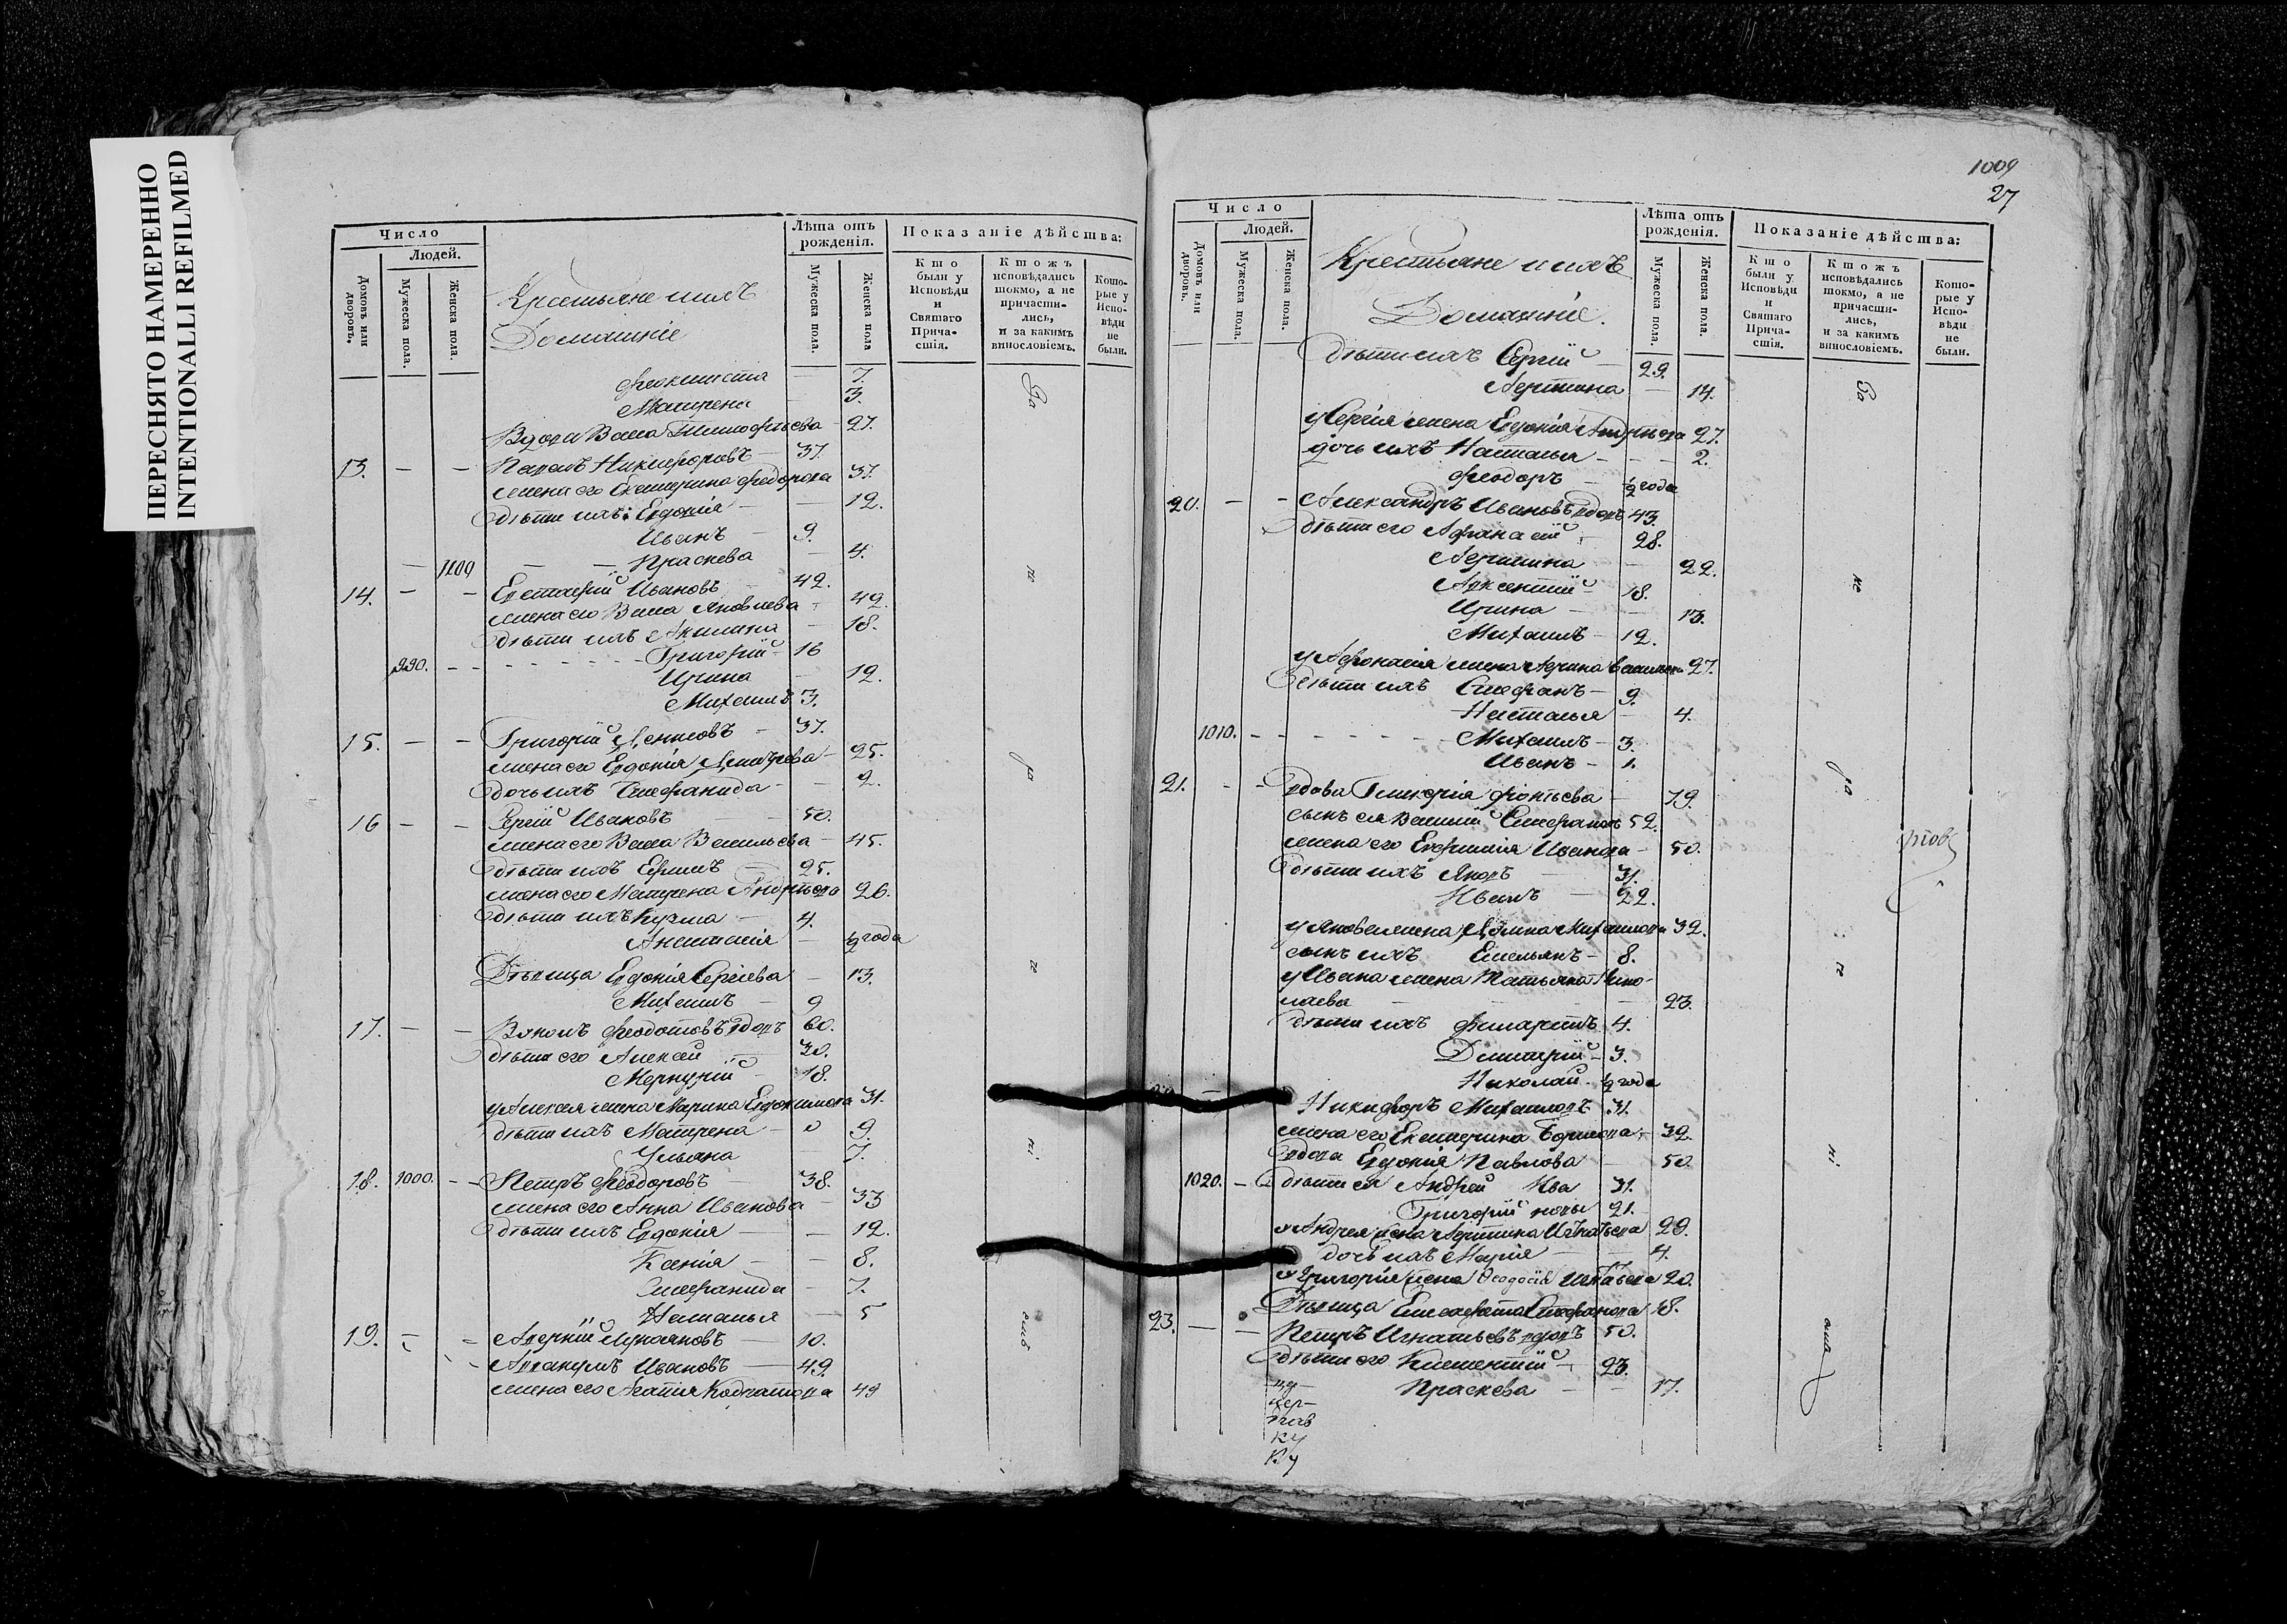 ПЕРЕСНЯТО НАМЕРЕННО
INTENTIONALLI REFILMED
Число
Людей.
Домовъ или дворовъ.
Мужеска пола.
Женска пола.
Крестьяне и ихъ
Домашніе
Лѣта отъ рожденія.
Мужеска пола.
Женска пола
Показаніе дѣйства:
Кто были у Исповѣди и Святаго Причастія.
Ктожъ исповѣдались токмо, а не причастились, и за какимъ винословіемъ.
Которые у Исповѣди не были.
Феоктиста — 7.
Матрена — 3.
Вдова Васса Тимофѣева — 27.
13. — — Павелъ Никифоровъ — 37.
жена его Екатерина Федорова 37.
дѣти ихъ: Евдокія — 12.
Иванъ — 9.
— 1100 — — Праскева — 4.
14. — — Евстафій Ивановъ 42.
жена его Васса Яковлева — 42.
дѣти ихъ Акилина — 18.
990. — Григорій 16
Ирина — 12.
Михаилъ 3.
15. — — Григорій Денисовъ — 37.
жена его Евдокія 25.
дочь ихъ Стефанида — 2.
16 — — Сергій Ивановъ 50.
жена его Васса Васильева — 45.
дѣти ихъ Ефимъ — 25.
жена его Матрена Андрѣева 26.
дѣти ихъ Кузма — 4.
Анастасія — ½ года
Дѣвица Евдокія Сергіева — 13.
Михаилъ — 9
17. — — Феодотовъ вдовъ 60.
дѣти его Алексей — 30.
Меркурій — 18.
у Алексея жена Марина Евдокимова 31.
дѣти ихъ Матрена — 9.
Ульяна 7.
18. 1000. — — Петръ Феодоровъ — 38.
жена его Анна Иванова — 33
дѣти ихъ Евдокія — 12.
Ксенія — 8.
Стефанида — 7.
Наталья — 5
19. Аверкій Лукояновъ — 10.
Ивановъ — 49.
жена его Агапія 49
1009
27
Число
Людей.
Домовъ или дворовъ.
Мужеска пола.
Женска пола.
Крестьяне и ихъ
Домашніе.
Лѣта отъ рожденія.
Мужеска пола.
Женска пола.
Показаніе дѣйства:
Кто были у Исповѣди и Святаго Причастія.
Ктожъ исповѣдались токмо, а не причастились, и за какимъ винословіемъ.
Которые у Исповѣди не были.
дѣти ихъ Сергій — 29.
14.
у Сергія жена Евдокія Андрѣева 27.
дочь ихъ Наталья — 2.
Феодоръ — ½ года
20. — — Александръ Ивановъ вдовъ 43.
дѣти его Афанасій — 28.
22.
Авксентій — 18.
Ирина — 13.
Михаилъ — 12.
у Афонасія жена 27.
дѣти ихъ Стефанъ — 9.
Наталья — 4.
1010. — Михаилъ — 3.
Иванъ — 1.
21. — — Вдова Гликерія 79.
сынъ ея Василій Стефановъ 52.
жена его Евфимія Иванова — 50.
дѣти ихъ Яковъ — 31.
Иванъ — 22.
у Якова жена Домна Михаилова 32.
сынъ ихъ Емельянъ — 8.
у Ивана жена Татьяна Нико-
лаева — 23.
дѣти ихъ Филаретъ 4.
Димитрій — 3.
Николай. ½ года
Никифоръ Михаиловъ 31.
жена его Екатерина Борисова — 32.
Вдова Евдокія Павлова — 50
1020. — дѣти ея Андрей Ива 31.
Григорій новы 21.
у Андрея жена Игнатьева 29.
дочь ихъ Марія — 4.
у Григорія жена Феодосія 20.
Дѣвица Елисавета Стефанова 18.
23. — — Петръ Игнатьевъ вдовъ 50.
дѣти его Климентій — 23.
Праскева — 17.